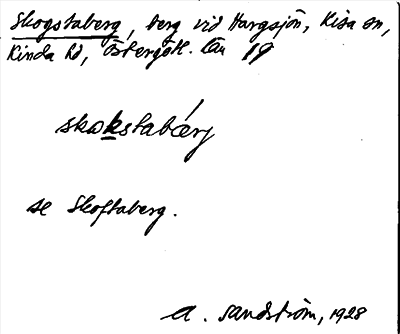 Skogstaberg, berg vid Hargsjön, Kisa sn,
Kinda hd, Östergötl. län 19
skokstabærj
se Skoftaberg.
A. Sandström, 1928